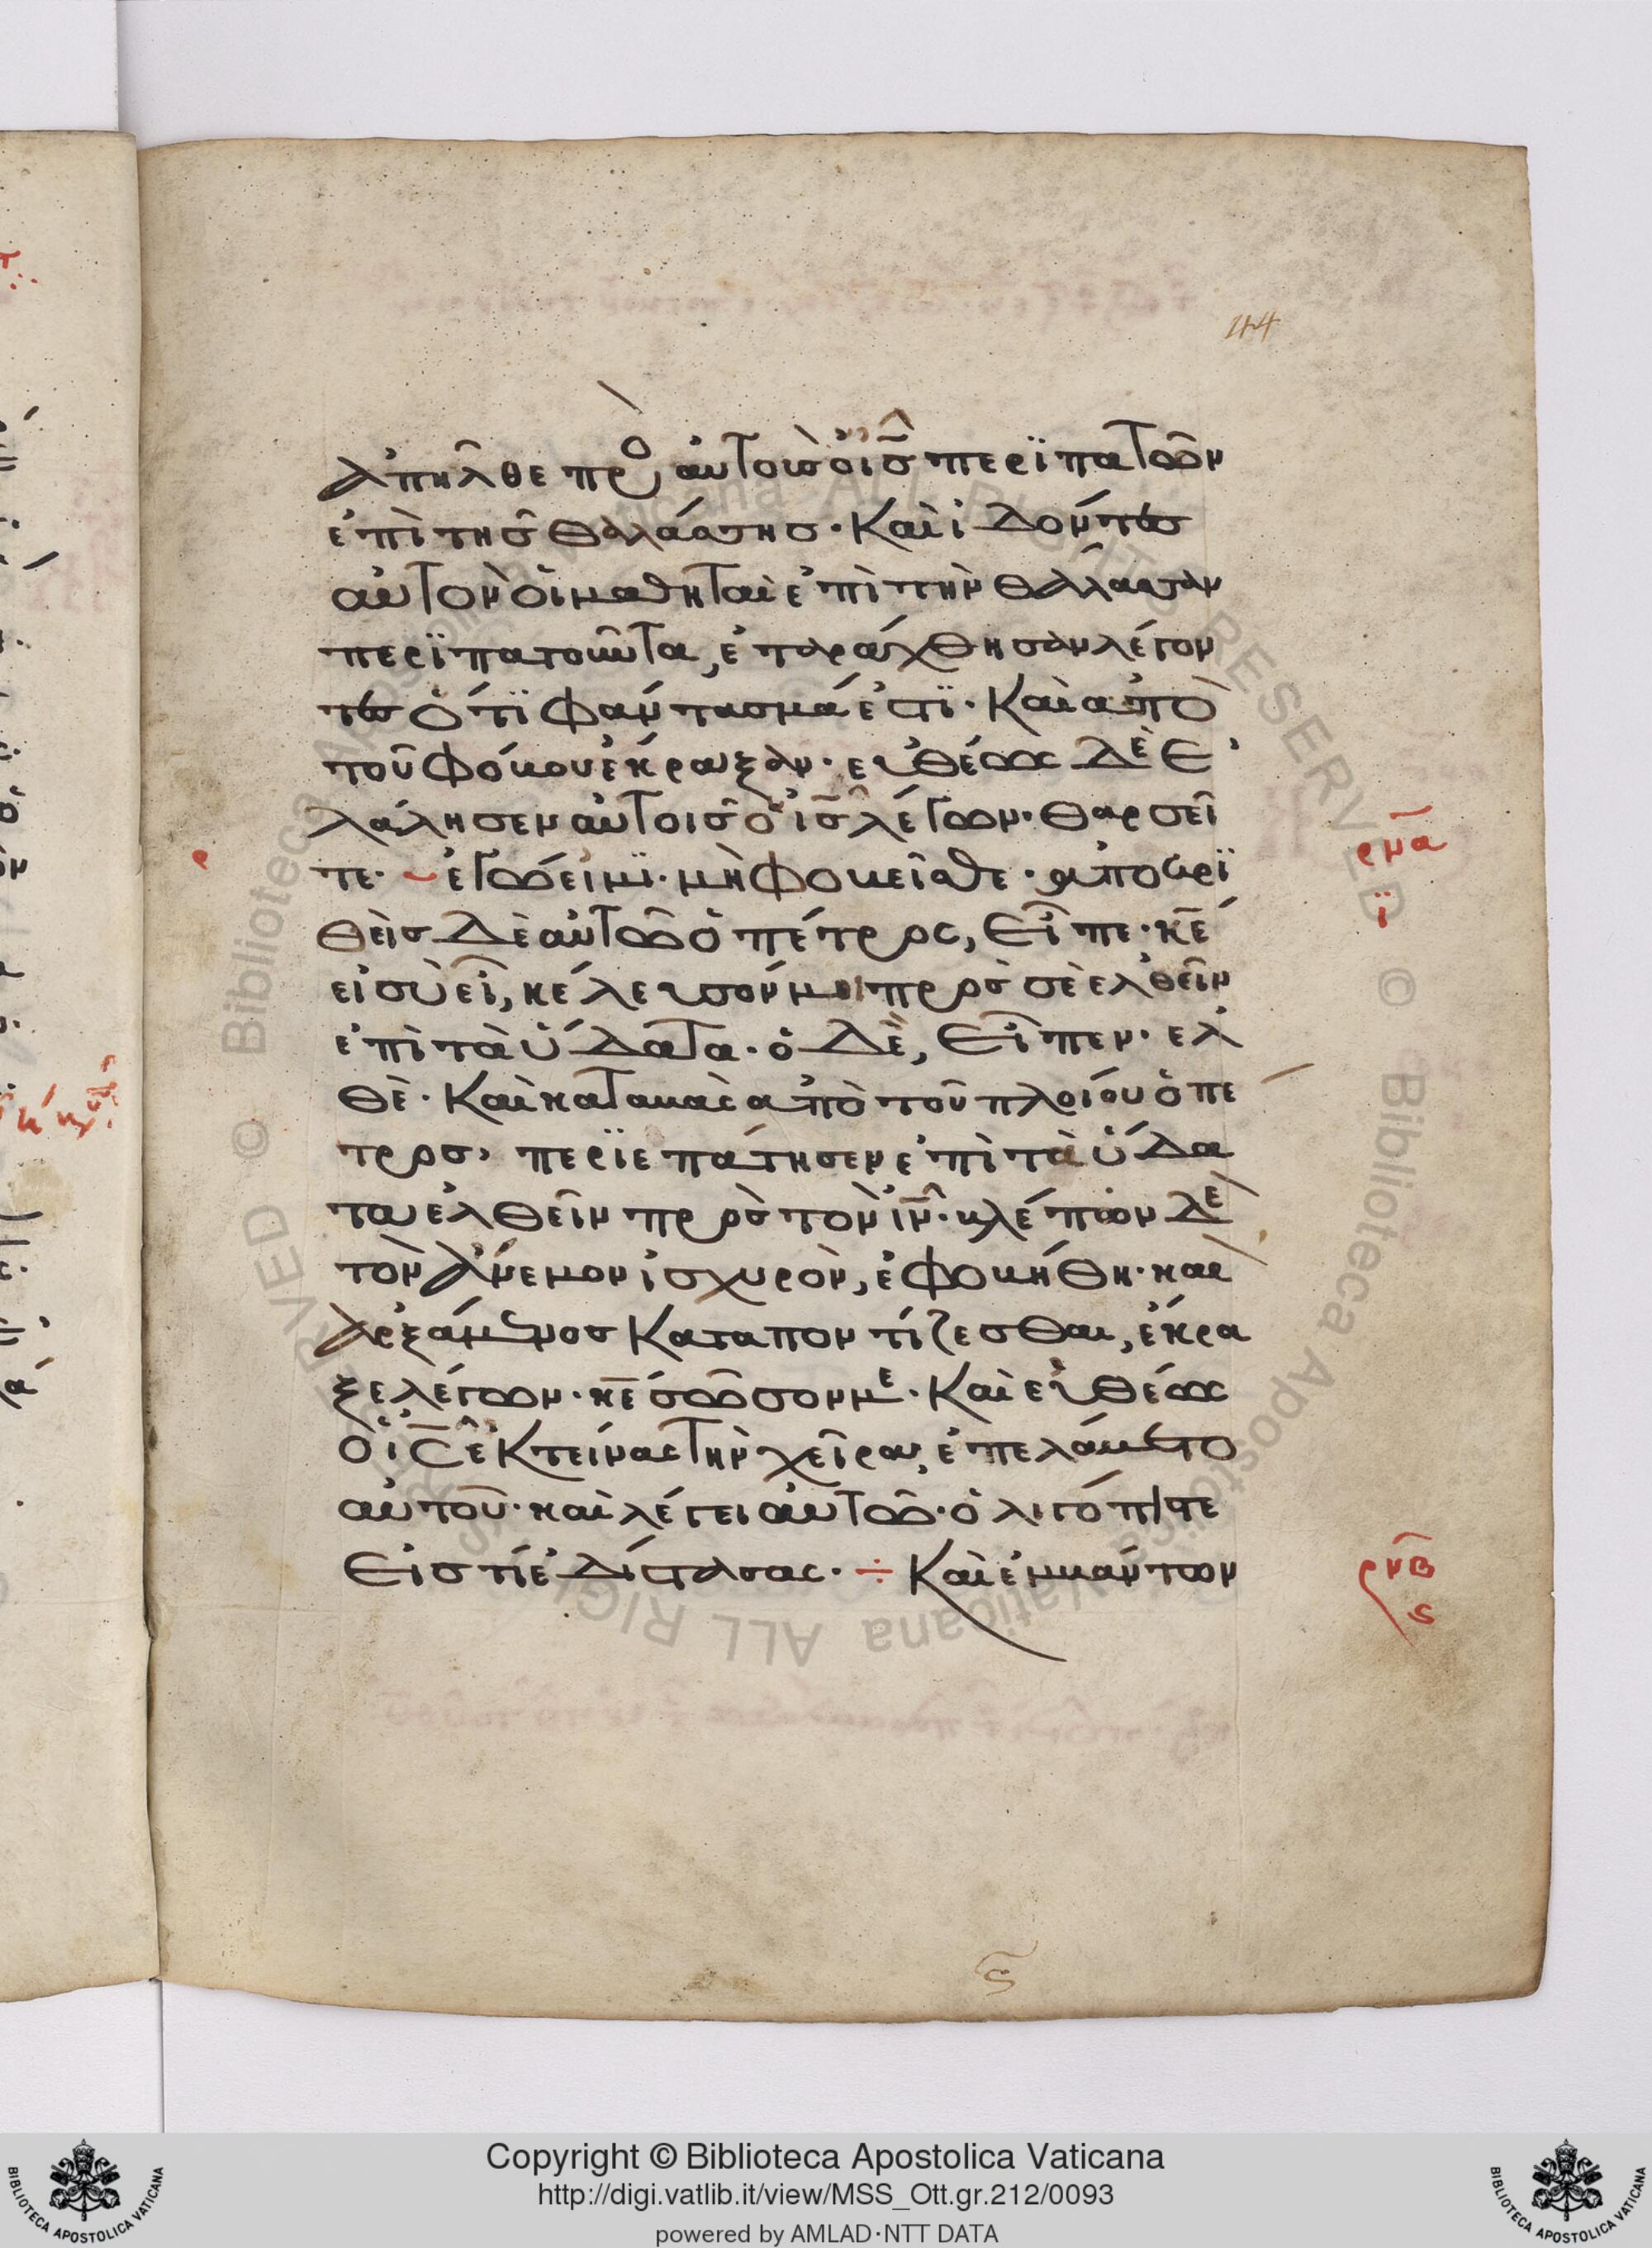 44
ἀπῆλθε πρὸ αὐτοὺσ ὁ ἰσ̄ περϊπατῶν
ἐπὶ τῆσ θαλάσσησ· Καὶ ἰδόντεσ
αὐτὸν ὁι μαθηταὶ ἐπὶ τὴν θάλασσαν
περϊπατοῦντα, ἐταράχθησαν λέγον
τεσ ὅτϊ φάντασμά ἐστϊ· Καὶ ἀπὸ
τοῦ φόβου ἔκραξαν· εὐθέως δὲ ἐ
λάλησεν αὐτοῖσ ὁ ἰσ̄ λέγων· θαρσεῖ
τε· ἐγώ εἰμϊ· μὴ φοβεῖσθε· ἀποκρϊ
θεὶσ δὲ αὐτῶ ὁ πέτρος, εἶπε· κ̄ε
εἰ σὺ εἶ, κέλευσόν μοι πρὸσ σὲ ἐλθεῖν
ἐπὶ τὰ ὕδατα· ὁ δὲ, εἶπεν· ἐλ
θὲ· Καὶ καταβὰς ἀπὸ τοῦ πλοίου ὁ πέ
τροσ, περϊεπάτησεν ἐπὶ τὰ ὕδα
τα ἐλθεῖν πρὸσ τὸν ἰν̄· βλέπων δὲ
τὸν ἄνεμον ἰσχυρὸν, ἐφοβήθη· καὶ
ἀρξάμενοσ Καταποντίζεσθαι, ἔκρα
ξε λέγων· κ̄ε σῶσόν με· Καὶ εὐθέως
ὁ ἰς̄ ἐκτείνας τὴν χεῖρα, ἐπελάβετο
αὐτοῦ· καὶ λέγει αὐτῶ· ὀλιγόπιστε
εἰσ τί ἐδίστασας· ÷ Καὶ ἐμβάντων
ρμα
ϊ
ρνβ
ς
Copyright © Biblioteca Apostolica Vaticana
http://digi.vatlib.it/view/MSS_Ott.gr.212/0093
powered by AMLAD·NTT DATA
BIBLIOTECA APOSTOLICA VATICANA
BIBLIOTECA APOSTOLICA VATICANA